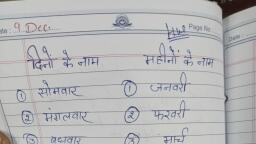 9 Dec.
H.W Page No
Date
दिनों के नाम महीनों के नाम
① सोमवार ① जनवरी
② मंगलवार ② फरवरी
③ बुधवार ③ मार्च